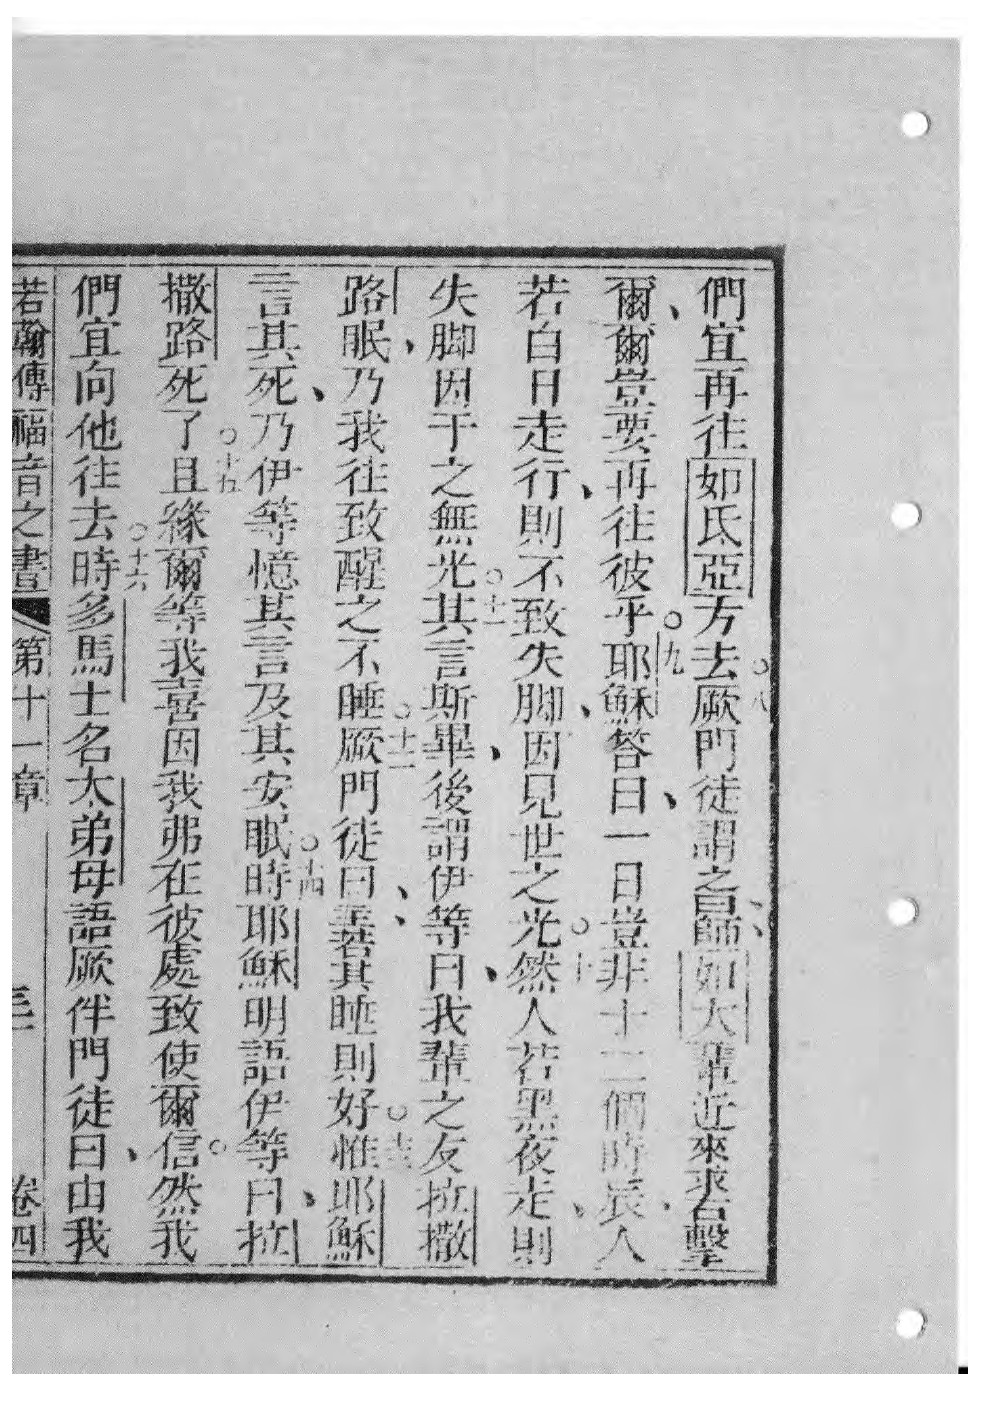 們宜再往如氐亞方去厥門徒謂之曰師如大輩近來求石擊
爾爾豈要再往彼乎耶穌答曰一日豈非十二個時辰人
若白日走行則不致失脚因見世之光然人若黑夜走則
失脚因于之無光其言斯畢後謂伊等曰我輩之友拉撒
路眠乃我往致醒之不睡厥門徒曰主若其睡則好惟耶穌
言其死乃伊等憶其言及其安眠時耶穌明語伊等曰拉
撒路死了且緣爾等我喜因我弗在彼處致使爾信然我
們宜向他往去時多馬士名大弟母語厥伴門徒曰由我
若翰傳福音之書 第十一章 卷四